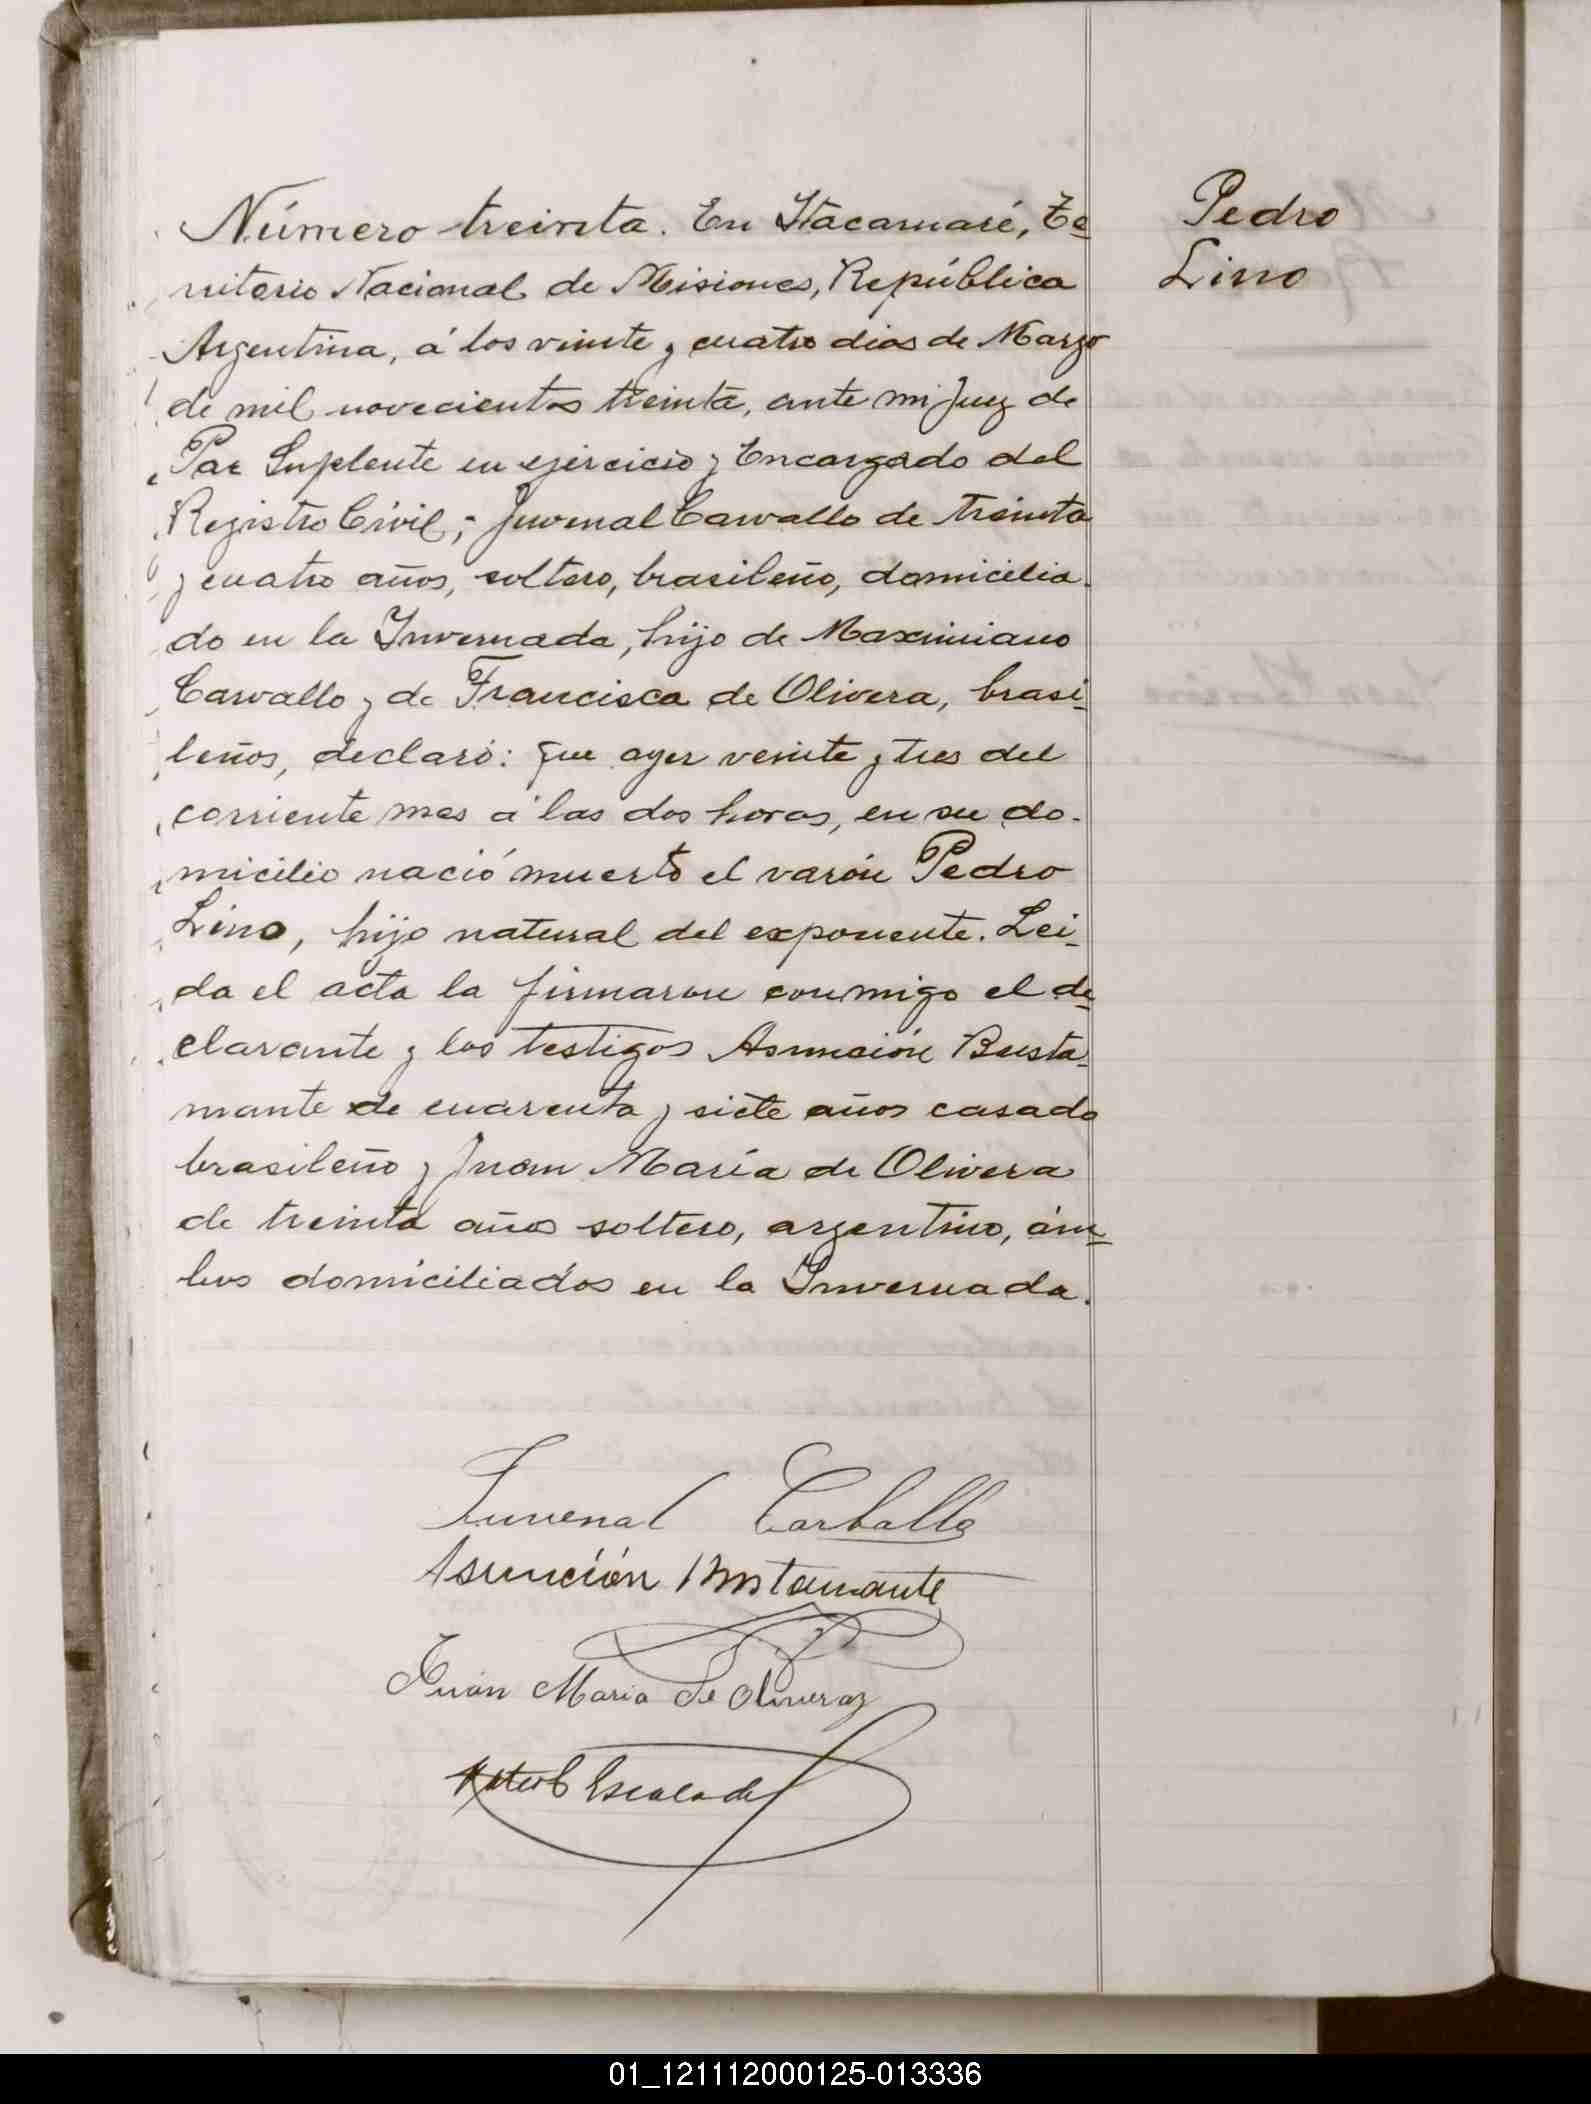 Pedro
Lino
Número treinta. En Itacaruaré, Te-
rritorio Nacional de Misiones, República
Argentina, á los veinte y cuatro dias de Marzo
de mil novecientos treinta, ante mi Juez de
Paz Suplente en ejercicio y Encargado del
Registro Civil; Juvenal Carvallo de treinta
y cuatro años, soltero, brasileño, domicilia-
do en la Invernada, hijo de Maximiano
Carvallo y de Francisca de Olivera, brasi-
leños, declaró: que ayer veinte y tres del
corriente mes á las dos horas, en su do-
micilio nació muerto el varón Pedro
Lino, hijo natural del exponente. Lei-
da el acta la firmaron conmigo el de-
clarante y los testigos Asunción Busta-
mante de cuarenta y siete años casado
brasileño y Juan María de Olivera
de treinta años soltero, argentino, ám-
bos domiciliados en la Invernada.
Juvenal Carballo
Asunción Bustamante
Juan Maria de Oliveraz
Escalada
01_121112000125-013336